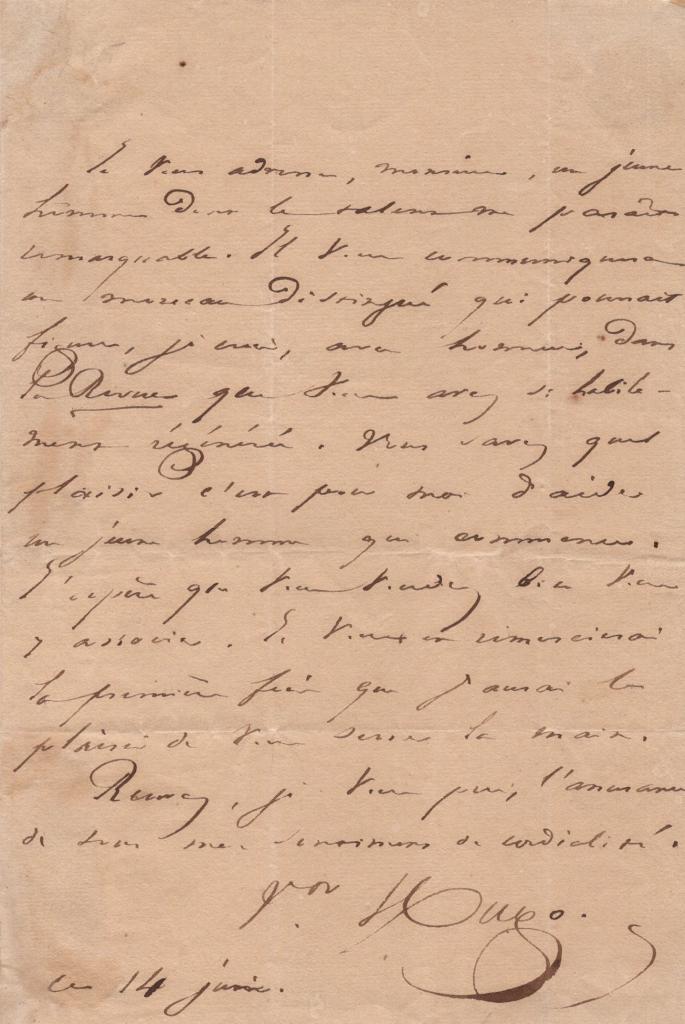 Je vous adresse, monsieur, un jeune
homme dont le talent me paraît
remarquable. Il vous communiquera
un morceau distingué qui pourrait
figurer, je crois, avec honneur, dans
la Revue que vous avez si habile-
ment régénérée. Vous savez quel
plaisir c'est pour moi d'aider
un jeune homme qui commence.
J'espère que vous voudrez bien vous
y associer. Je vous en remercierai
la première fois que j'aurai le
plaisir de vous serrer la main.
Recevez, je vous prie, l'assurance
de tous mes sentiments de cordialité.
Victor Hugo.
ce 14 juin.